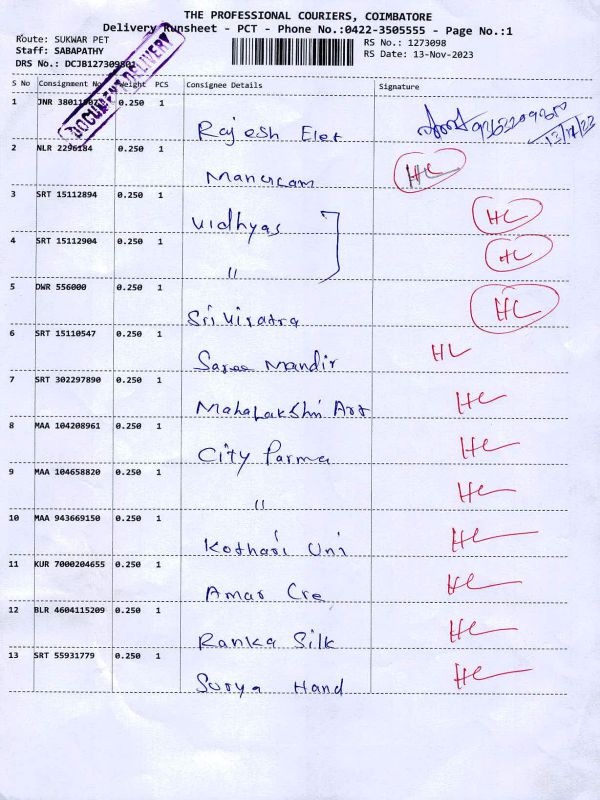 THE PROFESSIONAL COURIERS, COIMBATORE
Delivery Runsheet - PCT - Phone No.:0422-3505555 - Page No.:1
Route: SUKWAR PET RS No.: 1273098
Staff: SABAPATHY RS Date: 13-Nov-2023
DRS No.: DCJB127309801
DOCUMENT DELIVERY
S No Consignment No Weight PCS Consignee Details Signature
1 JNR 0.250 1 Rajesh Elet
2 NLR 2296184 0.250 1 HC
3 SRT 15112894 0.250 1 Vidhyas HC
4 SRT 15112904 0.250 1 " HC
5 DWR 556000 0.250 1 HC
6 SRT 15110547 0.250 1 Saree Mandir HC
7 SRT 302297890 0.250 1 Mahalakshri Art HC
8 MAA 104208961 0.250 1 City Parma HC
9 MAA 104658820 0.250 1 " HC
10 MAA 943669150 0.250 1 Kothari Uni HC
11 KUR 7000204655 0.250 1 Amar Cre HC
12 BLR 4604115209 0.250 1 Ranka Silk HC
13 SRT 55931779 0.250 1 Surya Hand HC